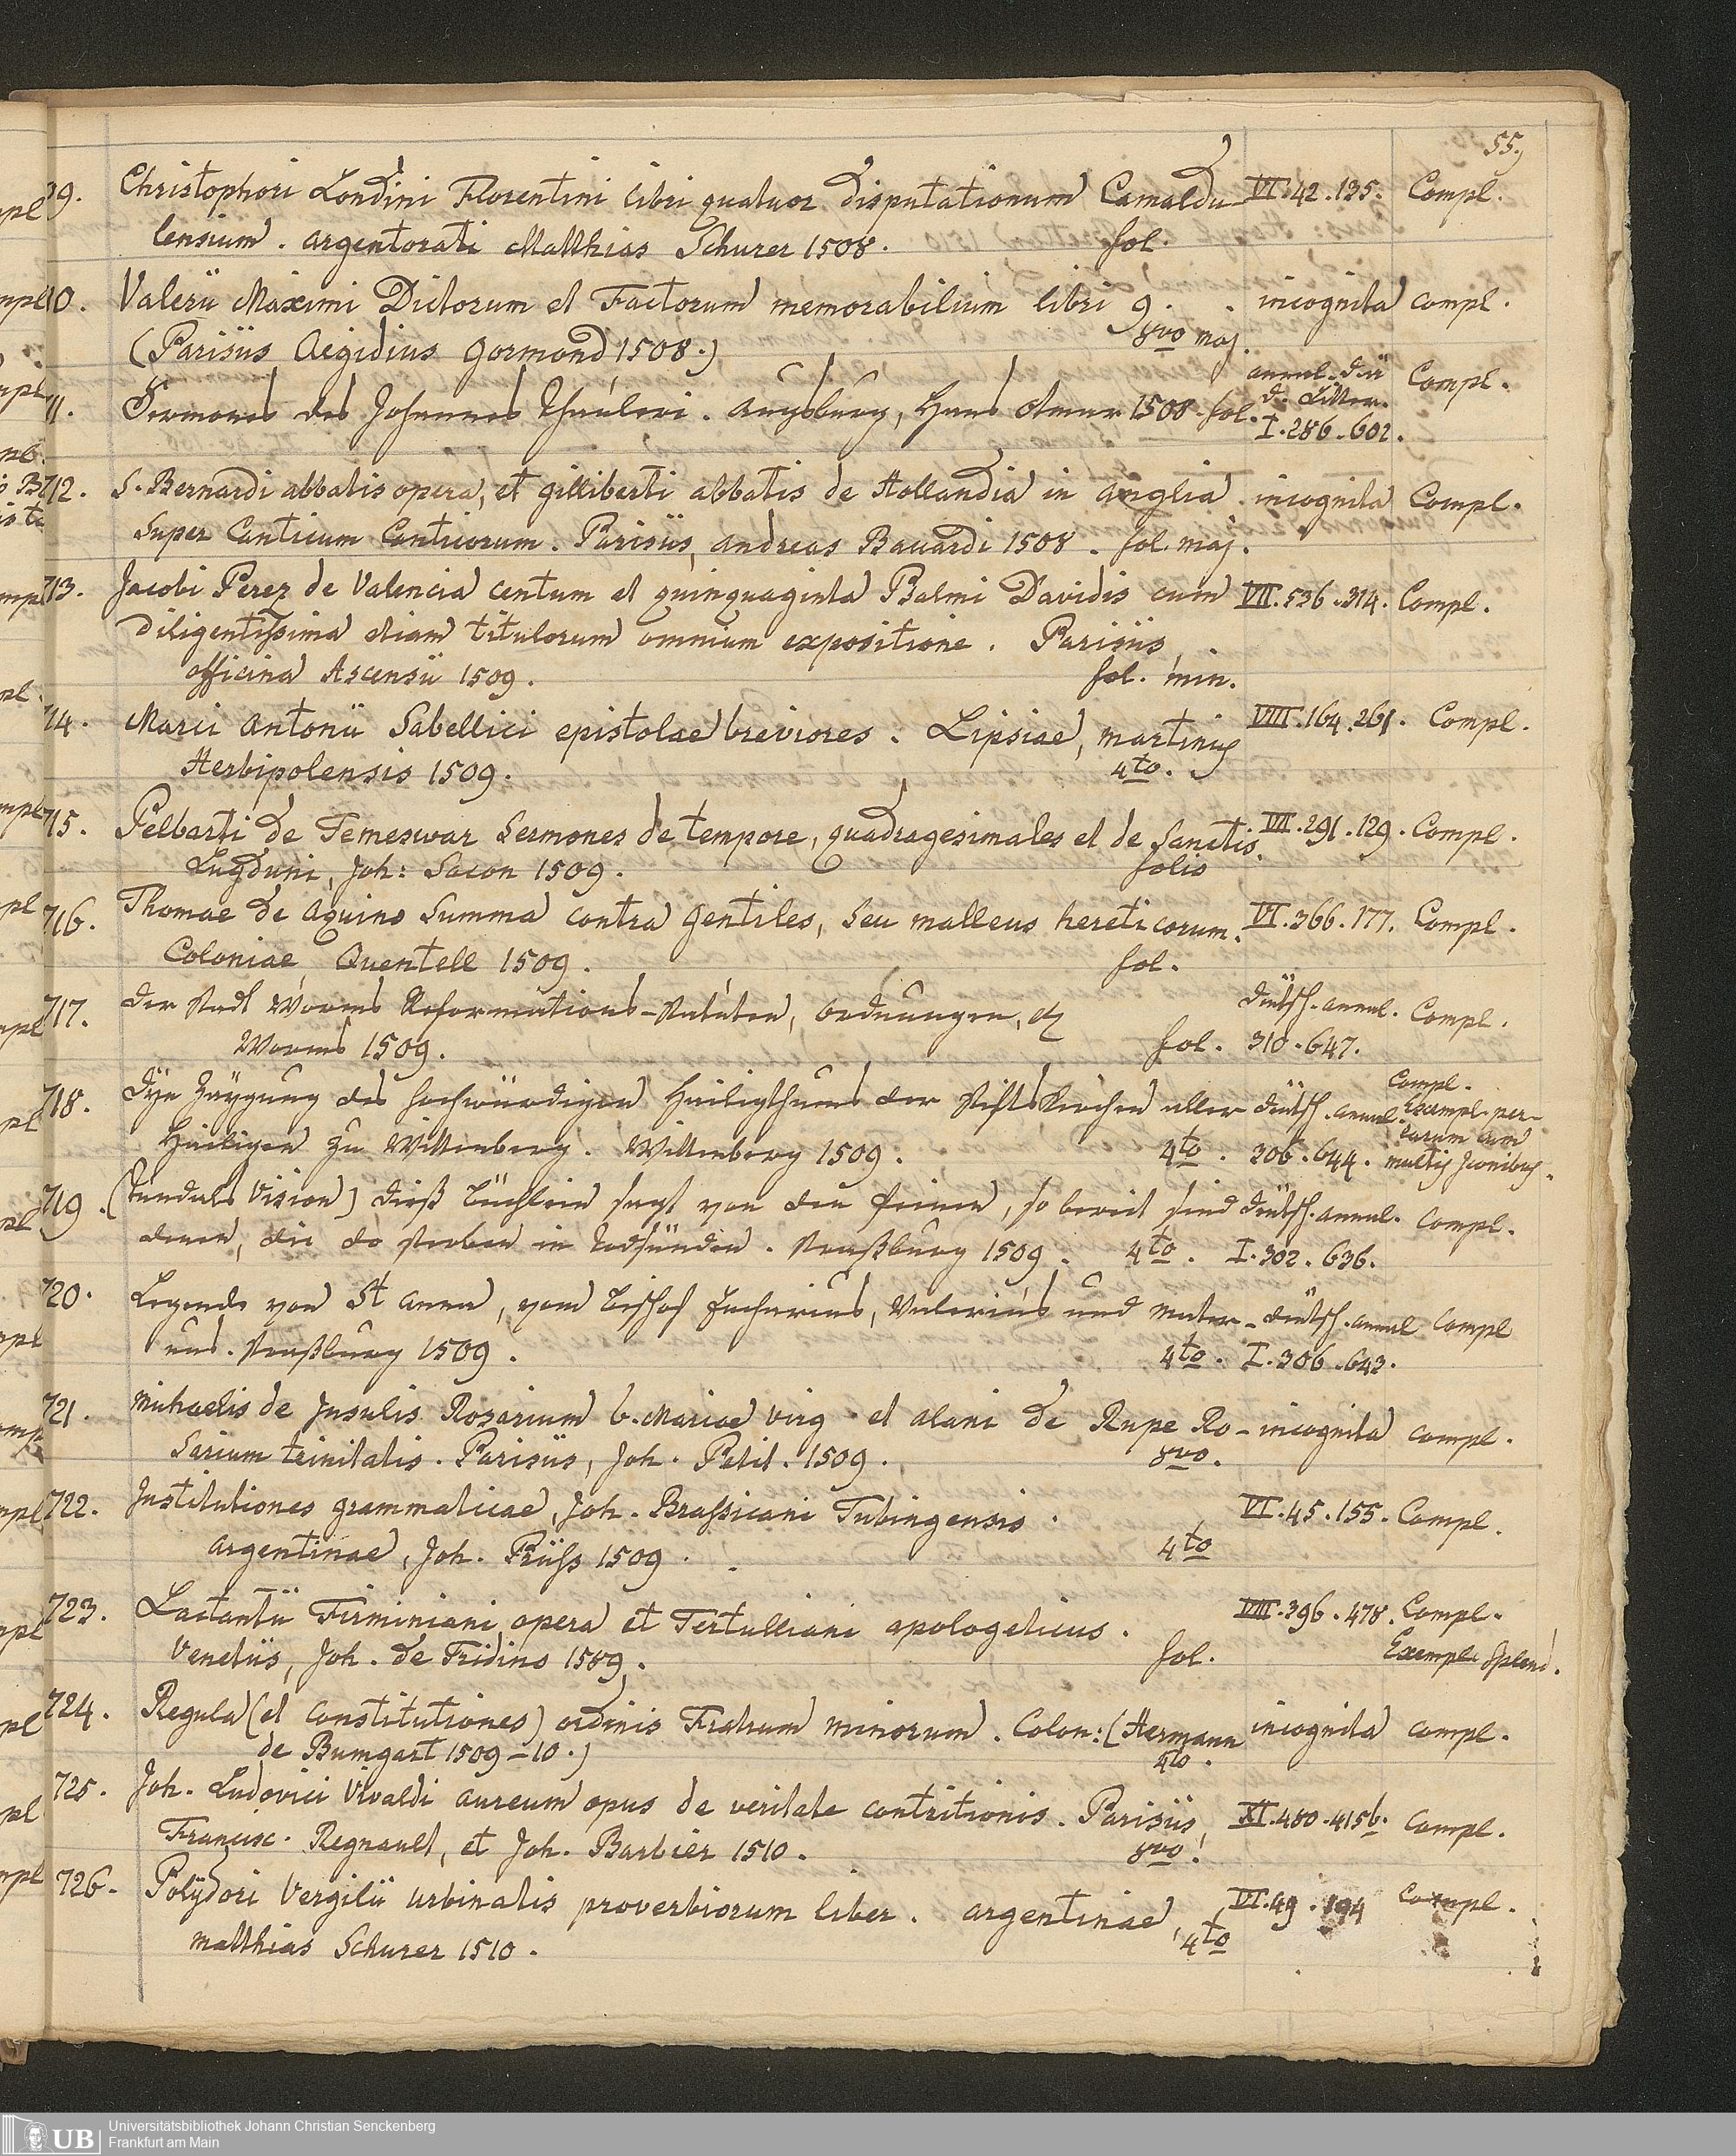 55.
09. Christophori Londini Florentini libri quatuor disputationum Camaldu- VI.42.135. Compl.
lensium. argentorati Matthias Schurer 1508. fol.
10. Valerii Maximi Dictorum et Factorum memorabilium libri 9. incognita compl.
(Parisiis Aegidius Gormond 1508.) 8vo maj.
11. Sermones des Johannes Thauleri. Augsburg, Hans Otmar 1508. fol. annal. d. ä. d. Litter. I.286.602. Compl.
712. S. Bernardi abbatis opera, et gilliberti abbatis de Hollandia in anglia incognita Compl.
super Canticum Canticorum. Parisiis, andreas Bauardi 1508. fol. maj.
713. Jacobi Perez de Valencia centum et quinquaginta Psalmi Davidis cum VII.536.314. Compl.
diligentissima etiam titulorum omnium expositione. Parisiis,
officina Ascensii 1509. fol. min.
714. Marci Antonii Sabellici epistolae breviores. Lipsiae, martinus VIII.164.261. Compl.
Herbipolensis 1509. 4to.
715. Pelbarti de Temeswar Sermones de tempore, quadragesimales et de Sanctis. VII.291.129. Compl.
Lugduni, Joh: Sacon 1509. folio
716. Thomae de Aquino Summa contra gentiles, seu malleus hereticorum. VI.366.177. Compl.
Coloniae, Quentell 1509. fol.
717. Der Stadt Worms Reformations-Statuten, Ordnungen, etc. deutsch. annal. Compl.
Worms 1509. fol. 310.647.
718. Dye Zaygung des hochwürdigen Heiligthums der Stiftskirchen aller deutsch. annal. Compl. Exempl. per-
Heiligen zu Wittenberg. Wittenberg 1509. 4to. 306.644. rarum cum multis Iconibus.
719. (Tundals Vision) dieß büchlein sagt von den peinen, so bereit sind deutsch. annal. Compl.
denen, die do sterben in Todsünden. Straßburg 1509. 4to. I.302.636.
720. Legende von St Anna, vom bischof Eucharius, Valerius und Mater- deutsch. annal Compl
nus. Straßburg 1509. 4to. I.306.643.
721. Michaelis de Insulis Rosarium b. Mariae virg. et alani de Rupe Ro- incognita compl.
sarium trinitatis. Parisiis, Joh. Petit. 1509. 8vo.
722. Institutiones grammaticae, Joh. Brassicani Tubingensis. VI.45.155. Compl.
argentinae, Joh. Prüss 1509. 4to
723. Lactantii Firminiani opera et Tertulliani apologeticus. VIII.396.478. Compl.
Venetiis, Joh. de Tridino 1509. fol. Exempl. splend.
724. Regula (et constitutiones) ordinis Fratrum minorum. Colon: (Hermann incognita compl.
de Bumgart 1509-10.) 4to.
725. Joh. Ludovici Vivaldi aureum opus de veritate contritionis. Parisiis, XI.480.415b. Compl.
Francisc. Regnault, et Joh. Barbier 1510. 8vo.
726. Polydori Vergilii urbinatis proverbiorum liber. argentinae, VI.49.194 Compl.
Matthias Schurer 1510. 4to
UB Universitätsbibliothek Johann Christian Senckenberg
Frankfurt am Main